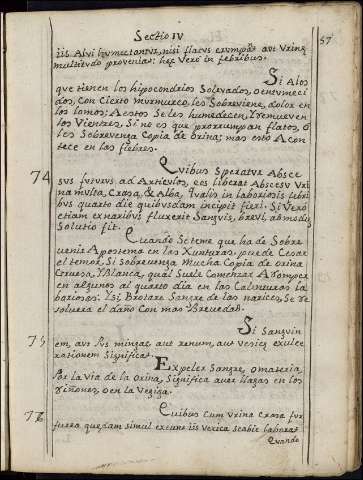 Sectio IV
57
iis Alvi humectantur, nisi flatus erumpãt aut Urinę
multitudo proveniat: hęc Vero in febribus.
Si A los
que tienen los hipocondrios Solevados, o entumeci
dos, con Cierto murmureo, les Sobreviene, dolor en
los lomos; A estos Se les humedecen, Y remueven
los Vientres, Si no es que prorrumpan flatos, ô
les Sobrevenga Copia de orina; mas esto Acon
tece en las fiebres.
74
Quibus Speratur Absce
sus futurus ad Articulos, eos liberat Abscesu Uri
na multa, Crasa, & Alba, Qualis in laboriosis febri
bus quarto die quibusdam incipit fieri. Si Verò
etiam ex naribus fluxerit Sanguis, brevi, ab modũ
Solutio fit.
Cuando Se teme que ha de Sobre
venir Apostema en las Xunturas, puede Cesar
el temor, Si Sobrevenga Mucha Copia de orina
Gruesa, Y Blanca, qual Suele Començar A romper
en algunos al quarto dia en las Calenturas la
boriosas: Y si Brotare Sangre de las narices, Se re
solvera el daño Con mas Brevedad.
75
Si Sanguin
em, aut Pus mingat, aut renum, aut vesicę exulce
rationem Significat.
Expeler Sangre, o materia,
Por la Via de la Orina, Significa aver llagas en los
riñones, o en la Vegiga.
76
Quibus Cum Urina Crasa fur
furea quędam simul exeunt iis Vesica Scabie laborat
Quando